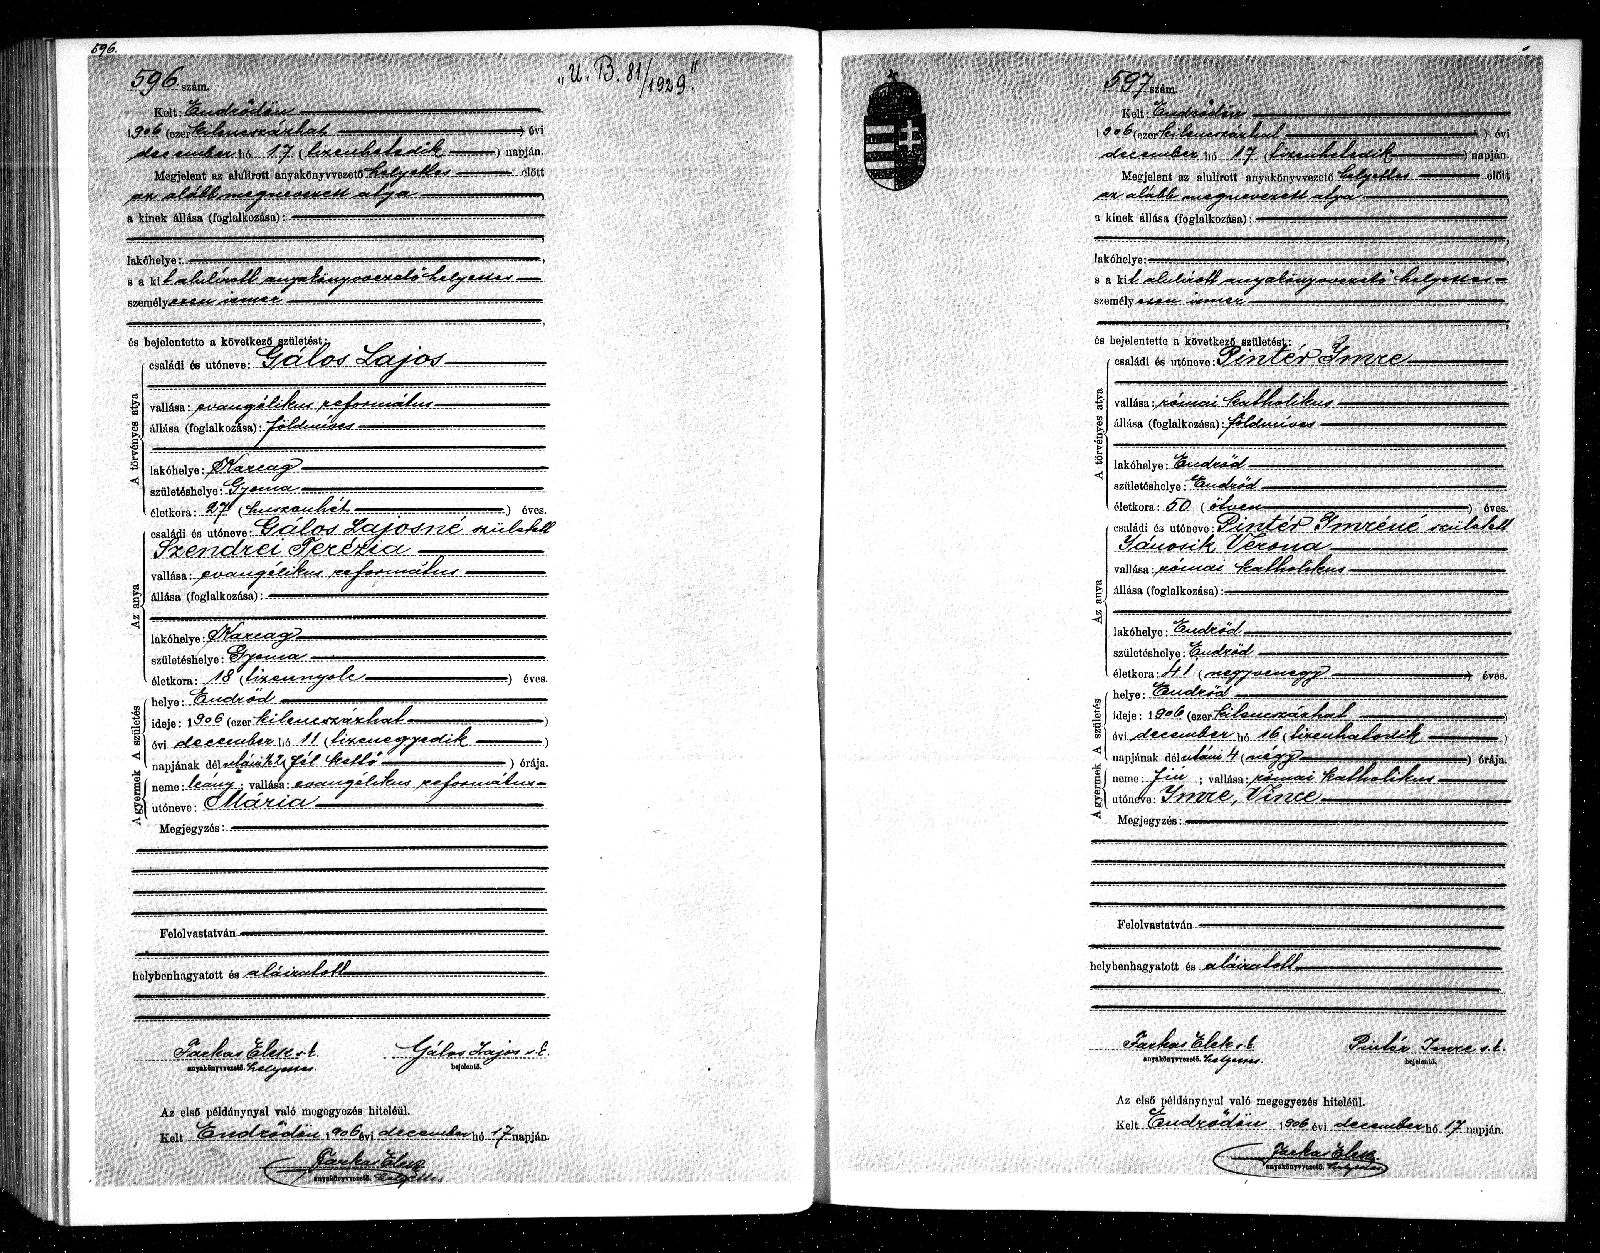 596.
596. szám.
„U. B. 81/1929."
Kelt: Endrődön
1906 (ezer kilencszázhat) évi
december hó 17 (tizenhetedik) napján.
Megjelent az alulirott anyakönyvvezető helyettes előtt
az alább megnevezett atya
a kinek állása (foglalkozása):
lakóhelye:
s a kit alulírott anyakönyvvezető helyettes
személyesen ismer
és bejelentette a következő születést:
A törvényes atya
családi és utóneve: Gálos Lajos
vallása: evangélikus református
állása (foglalkozása): földmíves
lakóhelye: Karcag
születéshelye: Gyoma
életkora: 27 (huszonhét) éves.
Az anya
családi és utóneve: Gálos Lajosné született
Szendrei Terézia
vallása: evangélikus református
állása (foglalkozása):
lakóhelye: Karcag
születéshelye: Gyoma
életkora: 18 (tizennyolc) éves.
A születés
helye: Endrőd
ideje: 1906 (ezer kilencszázhat)
évi december hó 11 (tizenegyedik)
napjának délutáni ½2 (fél kettő) órája.
A gyermek
neme: leány; vallása: evangélikus református
utóneve: Mária
Megjegyzés:
Felolvastatván
helybenhagyatott és aláiratott
Farkas Elek s.k. Gálos Lajos s.k.
anyakönyvvezető. helyettes bejelentő.
Az első példánynyal való megegyezés hiteléül.
Kelt Endrődön 1906 évi december hó 17 napján.
Farkas Elek
anyakönyvvezető. helyettes
597. szám.
Kelt: Endrődön
1906 (ezer kilencszázhat) évi
december hó 17 (tizenhetedik) napján.
Megjelent az alulirott anyakönyvvezető helyettes előtt
az alább megnevezett atya
a kinek állása (foglalkozása):
lakóhelye:
s a kit alulírott anyakönyvvezető helyettes
személyesen ismer
és bejelentette a következő születést:
A törvényes atya
családi és utóneve: Pintér Imre
vallása: római katholikus
állása (foglalkozása): földmíves
lakóhelye: Endrőd
születéshelye: Endrőd
életkora: 50 (ötven) éves.
Az anya
családi és utóneve: Pintér Imréné született
Jánosik Verona
vallása: római katholikus
állása (foglalkozása):
lakóhelye: Endrőd
születéshelye: Endrőd
életkora: 41 (negyvenegy) éves.
A születés
helye: Endrőd
ideje: 1906 (ezer kilencszázhat)
évi december hó 16 (tizenhatodik)
napjának délutáni 4 (négy) órája.
A gyermek
neme: fiu; vallása: római katholikus
utóneve: Imre, Vince
Megjegyzés:
Felolvastatván
helybenhagyatott és aláiratott
Farkas Elek s.k. Pintér Imre s.k.
anyakönyvvezető. helyettes bejelentő.
Az első példánynyal való megegyezés hiteléül.
Kelt Endrődön 1906 évi december hó 17 napján.
Farkas Elek
anyakönyvvezető. helyettes